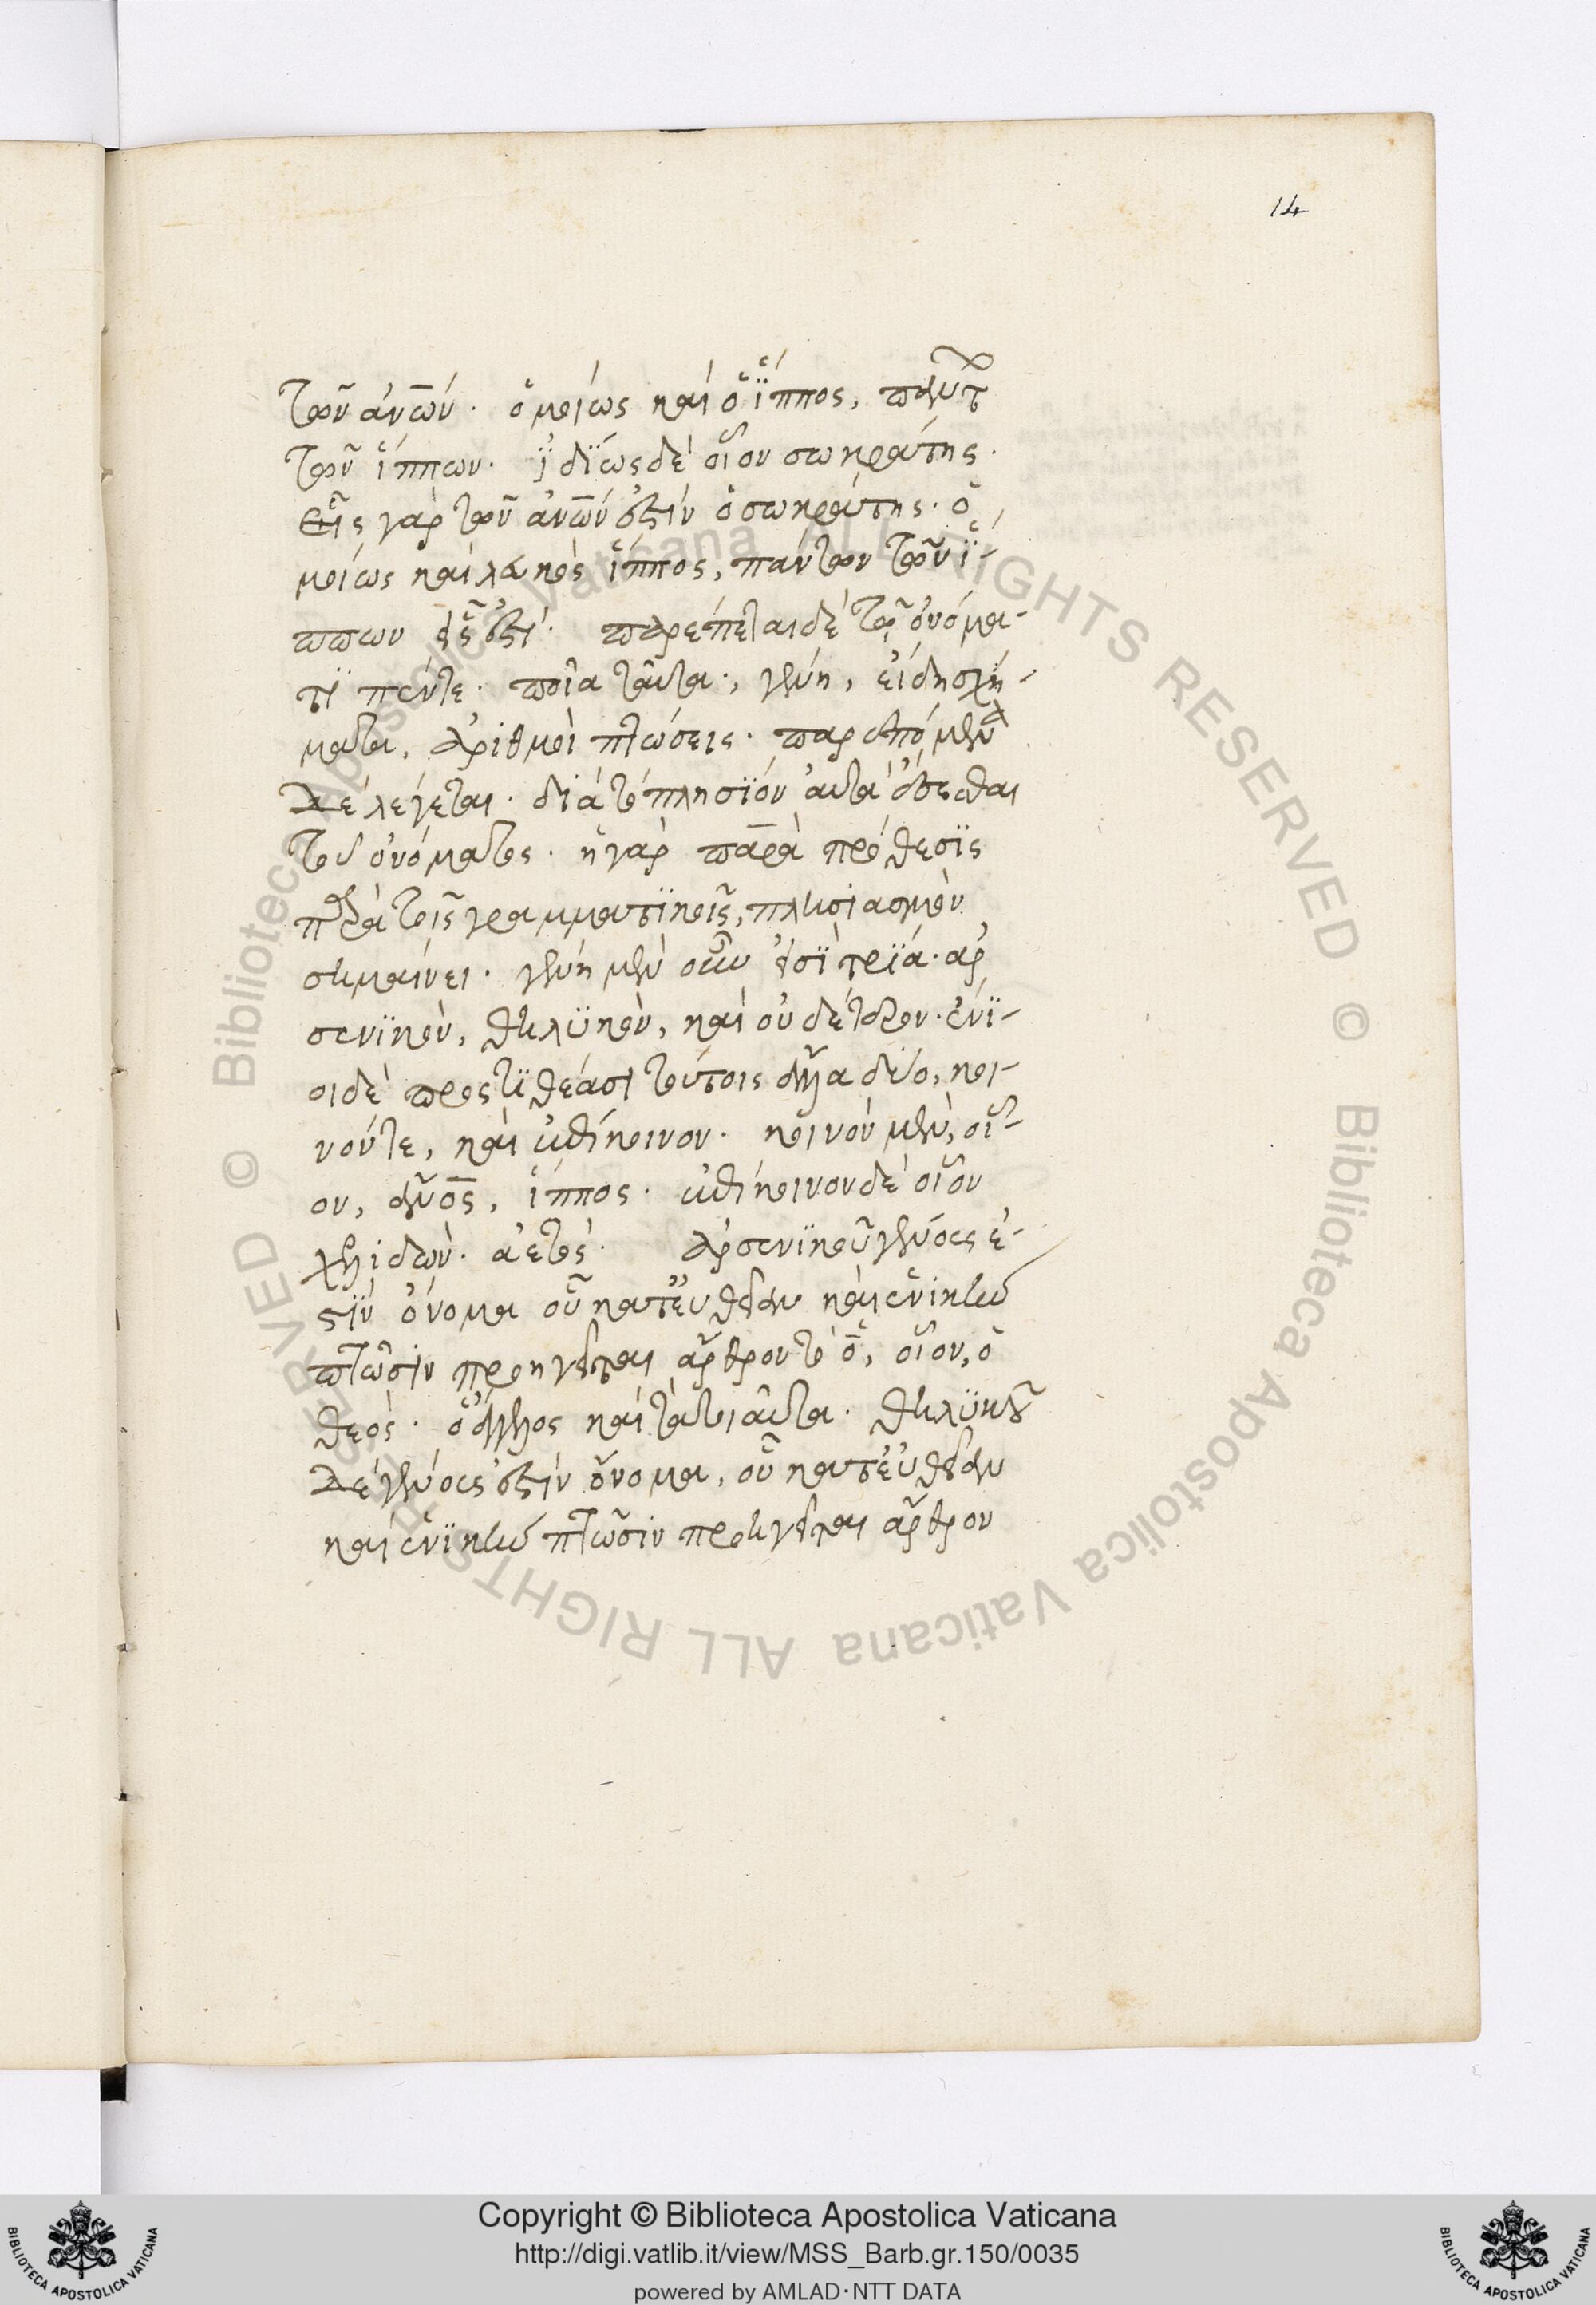 14
τῶν ἀν̅ων́. ὁμοίως καὶ ὁ ἵ̈ππος, πάντ
τῶν ἵππων. ἰ̈δϊως δὲ οἷον σωκράτης.
Εἷς γὰρ τῶν ἀν̅ων́ ἐστὶν ὁ σωκράτης. ὁ
μοίως καὶ λακὸς ἵππος, πάντων τῶν ἵ̈-
ππων εἷς ἐστί. παρέπεται δὲ τῷ ὀνόμα-
τϊ πέντε. ποῖα ταῦτα., γένη, εἴδη σχή-
ματα, ἀριθμοὶ πτώσεις. παρεπόμενα
δὲ λέγεται. διὰ τὸ πλησϊόν αὐτὰ ἕπεσθαι
τοῦ ὀνόματος. ἡ γὰρ παρὰ πρόθεσϊς
παρὰ τοῖς γραμματϊκοῖς, πλησιασμὸν
σημαίνει. γένη μὲν οὖν εἰσϊ τρϊά. ἀρ
σενϊκὸν, θηλϋκὸν, καὶ οὐδέτερον. ἔνϊ-
οι δὲ προστϊθέασι τούτοις ἄλλα δύο, κοι-
νόν τε, καὶ ἐπίκοινον. κοινὸν μὲν, οἷ-
ον, ἀν̅ο̅ς, ἵππος. ἐπίκοινον δὲ οἷον
χελιδὼν. ἀετὸς. ἀρσενϊκοῦ γένους ἐ-
στϊν ὄνομα οὗ κατ' εὐθεῖαν καὶ ἑνικὴν
πτῶσιν προηγεῖται ἄρθρον τὸ ὁ, οἷον, ὁ
θεὸς. ὁ ἄγγελος καὶ τὰ τοιαῦτα. θηλϋκοῦ
δὲ γένους ἐστὶν ὄνομα, οὗ κατ' εὐθεῖαν
καὶ ἑνϊκὴν πτῶσιν προηγεῖται ἄρθρον
Copyright © Biblioteca Apostolica Vaticana
http://digi.vatlib.it/view/MSS_Barb.gr.150/0035
powered by AMLAD·NTT DATA
BIBLIOTECA APOSTOLICA VATICANA
BIBLIOTECA APOSTOLICA VATICANA
© Biblioteca Apostolica Vaticana ALL RIGHTS RESERVED © Biblioteca Apostolica Vaticana ALL RIGHTS RESERVED